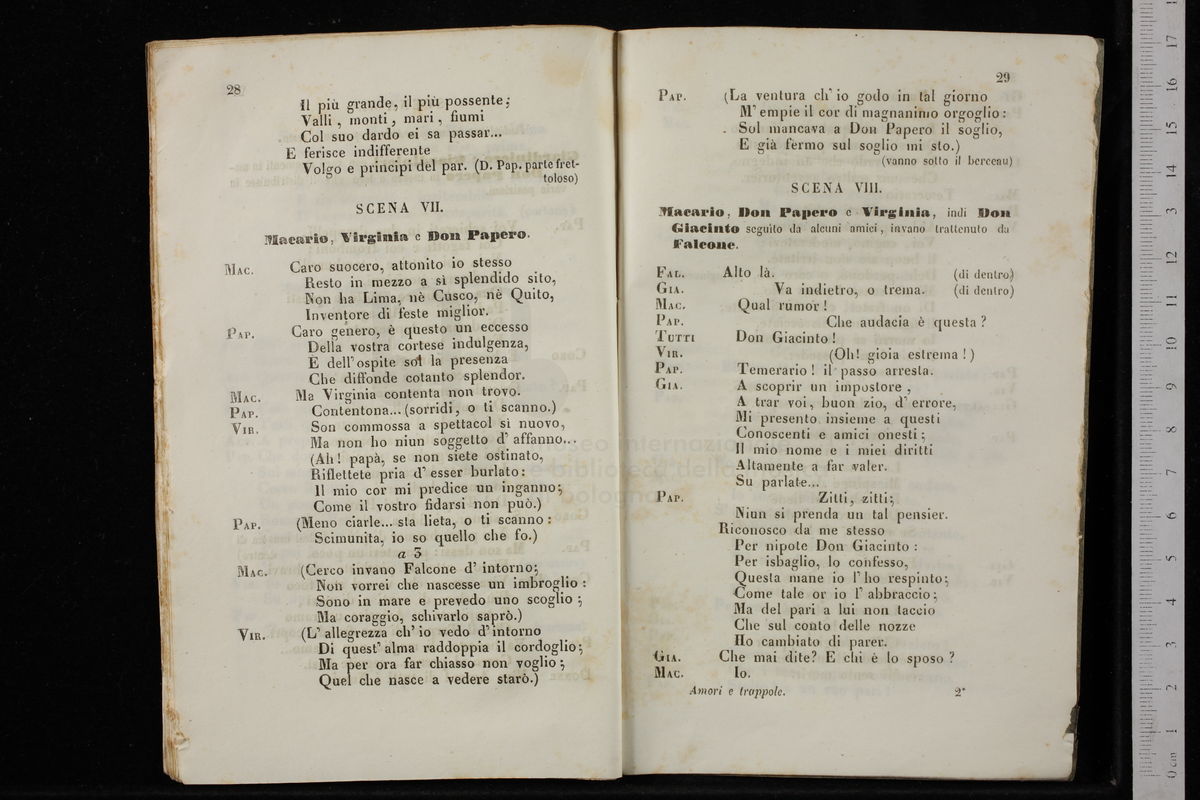 28
Il più grande, il più possente;
Valli, monti, mari, fiumi
Col suo dardo ei sa passar...
E ferisce indifferente
Volgo e principi del par. (D. Pap. parte fret-
toloso)
SCENA VII.
Macario, Virginia e Don Papero.
MAC. Caro suocero, attonito io stesso
Resto in mezzo a sì splendido sito,
Non ha Lima, nè Cusco, nè Quito,
Inventore di feste miglior.
PAP. Caro genero, è questo un eccesso
Della vostra cortese indulgenza,
E dell' ospite sol la presenza
Che diffonde cotanto splendor.
MAC. Ma Virginia contenta non trovo.
PAP. Contentona... (sorridi, o ti scanno.)
VIR. Son commossa a spettacol sì nuovo,
Ma non ho niun soggetto d' affanno...
(Ah! papà, se non siete ostinato,
Riflettete pria d' esser burlato:
Il mio cor mi predice un inganno;
Come il vostro fidarsi non può.)
PAP. (Meno ciarle... sta lieta, o ti scanno:
Scimunita, io so quello che fo.)
a 3
MAC. (Cerco invano Falcone d' intorno;
Non vorrei che nascesse un imbroglio:
Sono in mare e prevedo uno scoglio;
Ma coraggio, schivarlo saprò.)
VIR. (L' allegrezza ch' io vedo d' intorno
Di quest' alma raddoppia il cordoglio;
Ma per ora far chiasso non voglio;
Quel che nasce a vedere starò.)
29
PAP. (La ventura ch' io godo in tal giorno
M' empie il cor di magnanimo orgoglio:
Sol mancava a Don Papero il soglio,
E già fermo sul soglio mi sto.)
(vanno sotto il berceau)
SCENA VIII.
Macario, Don Papero e Virginia, indi Don
Giacinto seguìto da alcuni amici, invano trattenuto da
Falcone.
FAL. Alto là. (di dentro)
GIA. Va indietro, o trema. (di dentro)
MAC. Qual rumor!
PAP. Che audacia è questa?
TUTTI Don Giacinto!
VIR. (Oh! gioia estrema!)
PAP. Temerario! il passo arresta.
GIA. A scoprir un impostore,
A trar voi, buon zio, d' errore,
Mi presento insieme a questi
Conoscenti e amici onesti;
Il mio nome e i miei diritti
Altamente a far valer.
Su parlate...
PAP. Zitti, zitti;
Niun si prenda un tal pensier.
Riconosco da me stesso
Per nipote Don Giacinto:
Per isbaglio, lo confesso,
Questa mane io l' ho respinto;
Come tale or io l' abbraccio;
Ma del pari a lui non taccio
Che sul conto delle nozze
Ho cambiato di parer.
GIA. Che mai dite? E chi è lo sposo?
MAC. Io.
Amori e trappole. 2*